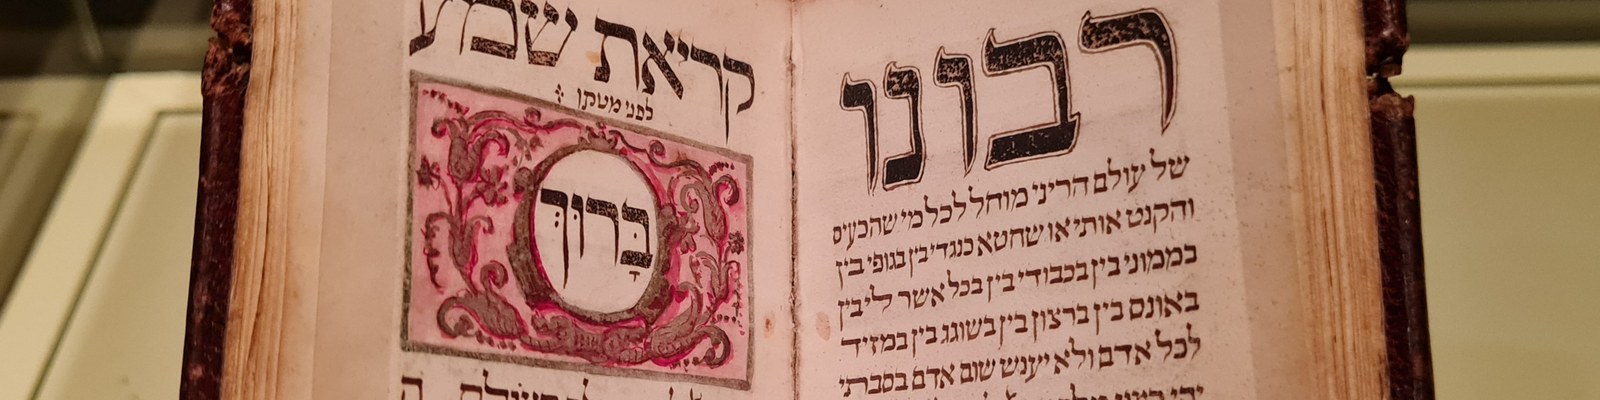 רבונו
של עולם הריני מוחל לכל מי שהכעיס
והקנט אותי או שחטא כנגדי בין בגופי בין
בממוני בין בכבודי בין בכל אשר לי בין
באונס בין ברצון בין בשוגג בין במזיד
לכל אדם ולא יענש שום אדם בסבתי
יהי רצון
קריאת שמע
לפני מטתו
בָּרוּךְ